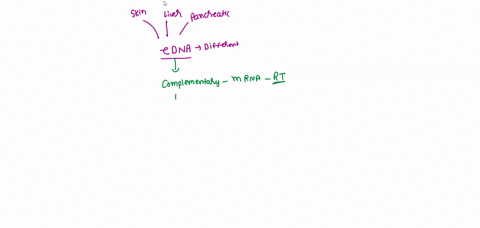 Skin Liver Pancreatic
cDNA → Different
Complementary - mRNA - RT